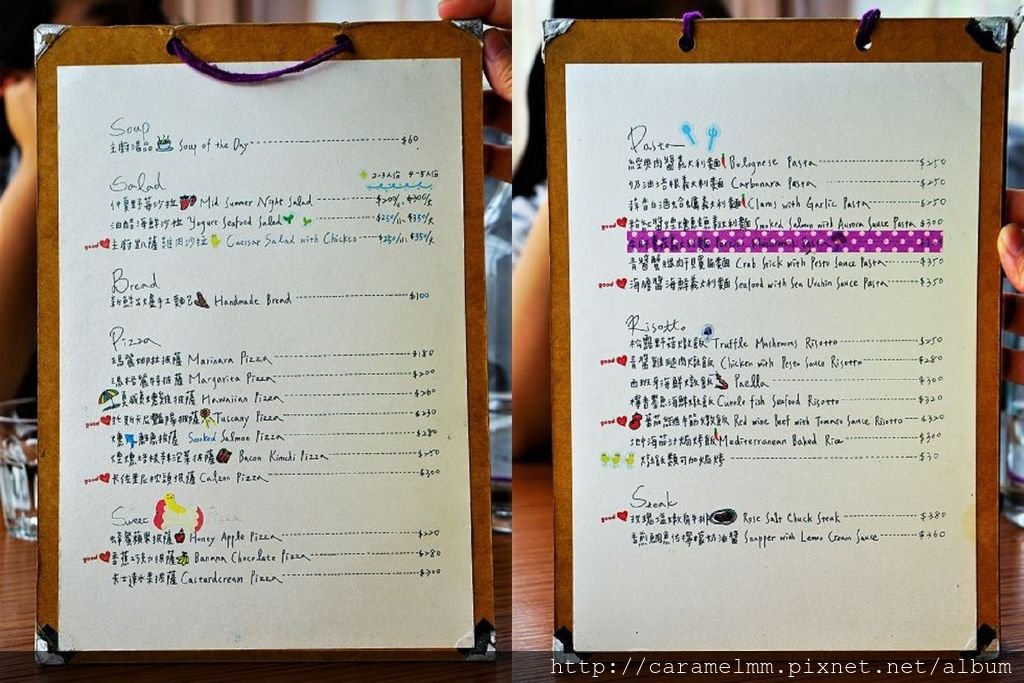 Soup
主廚湯品 Soup of the Day $60
Salad
2-3人份 4-5人份
伊夏野莓沙拉 Mid Summer Night Salad
油醋海鮮沙拉 Yogurt Seafood Salad $250/小 $350/大
good 主廚凱薩雞肉沙拉 Caessar Salad with Chicken $250/小 $350/大
Bread
新鮮出爐手工麵包 Handmade Bread $100
Pizza
瑪麗娜拉披薩 Marinara Pizza $180
瑪格麗特披薩 Margarita Pizza $200
夏威夷燻雞披薩 Hawaiian Pizza $260
good 托斯卡尼豔陽披薩 Tuscany Pizza $230
燻鮭魚披薩 Smoked Salmon Pizza $280
煙燻培根辣泡菜披薩 Bacon Kimchi Pizza $250
good 卡佐里尼枕頭披薩 Calzon Pizza $300
Sweet Pizza
蜂蜜蘋果披薩 Honey Apple Pizza $220
good 香蕉巧克力披薩 Banana Chocolate Pizza $280
卡士達水果披薩 Castardcream Pizza $300
Pasta
經典肉醬義大利麵 Bolognese Pasta $250
奶油培根義大利麵 Carbonara Pasta $250
蒜香白酒蛤蠣義大利麵 Clams with Garlic Pasta $250
good 粉紅醬煙燻鮭魚義大利麵 Smoked Salmon with Aurora Sauce Pasta $300
青醬蟹腿肉干貝寬扁麵 Crab Stick with Pesto Sauce Pasta $350
good 海膽醬海鮮義大利麵 Seafood with Sea Urchin Sauce Pasta $350
Risotto
松露野菇燉飯 Truffle Mushrooms Risotto $250
good 青醬雞腿肉燉飯 Chicken with Pesto Sauce Risotto $280
西班牙海鮮燉飯 Paella $300
檸香墨魚海鮮燉飯 fish Seafood Risotto $320
good 蕃茄紅酒牛筋燉飯 Red wine Beef with Tomato Sauce Risotto $320
地中海茄汁焗烤飯 Mediterranean Baked Rice $300
燉飯類可加焗烤 $30
Steak
good 玫瑰鹽嫩肩牛排 Rose Salt Chuck Steak $380
香煎鯛魚佐檸檬奶油醬 Snapper with Lemon Cream Sauce $360
http://caramelmm.pixnet.net/album